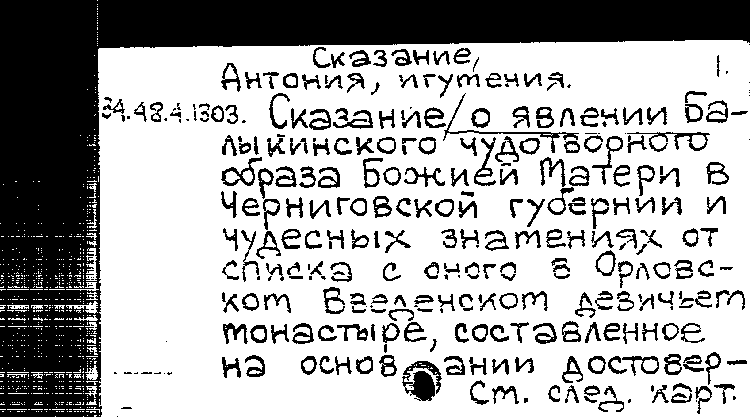 Сказание,
Антония, игумения. 1.
34.48.4.1303. Сказание/о явлении Ба-
лыкинского чудотворного
образа Божией Матери в
Черниговской губернии и
чудесных знамениях от
списка с оного в Орловс-
ком Введенском девичьем
монастыре, составленное
на основании достовер-
См. след. карт.